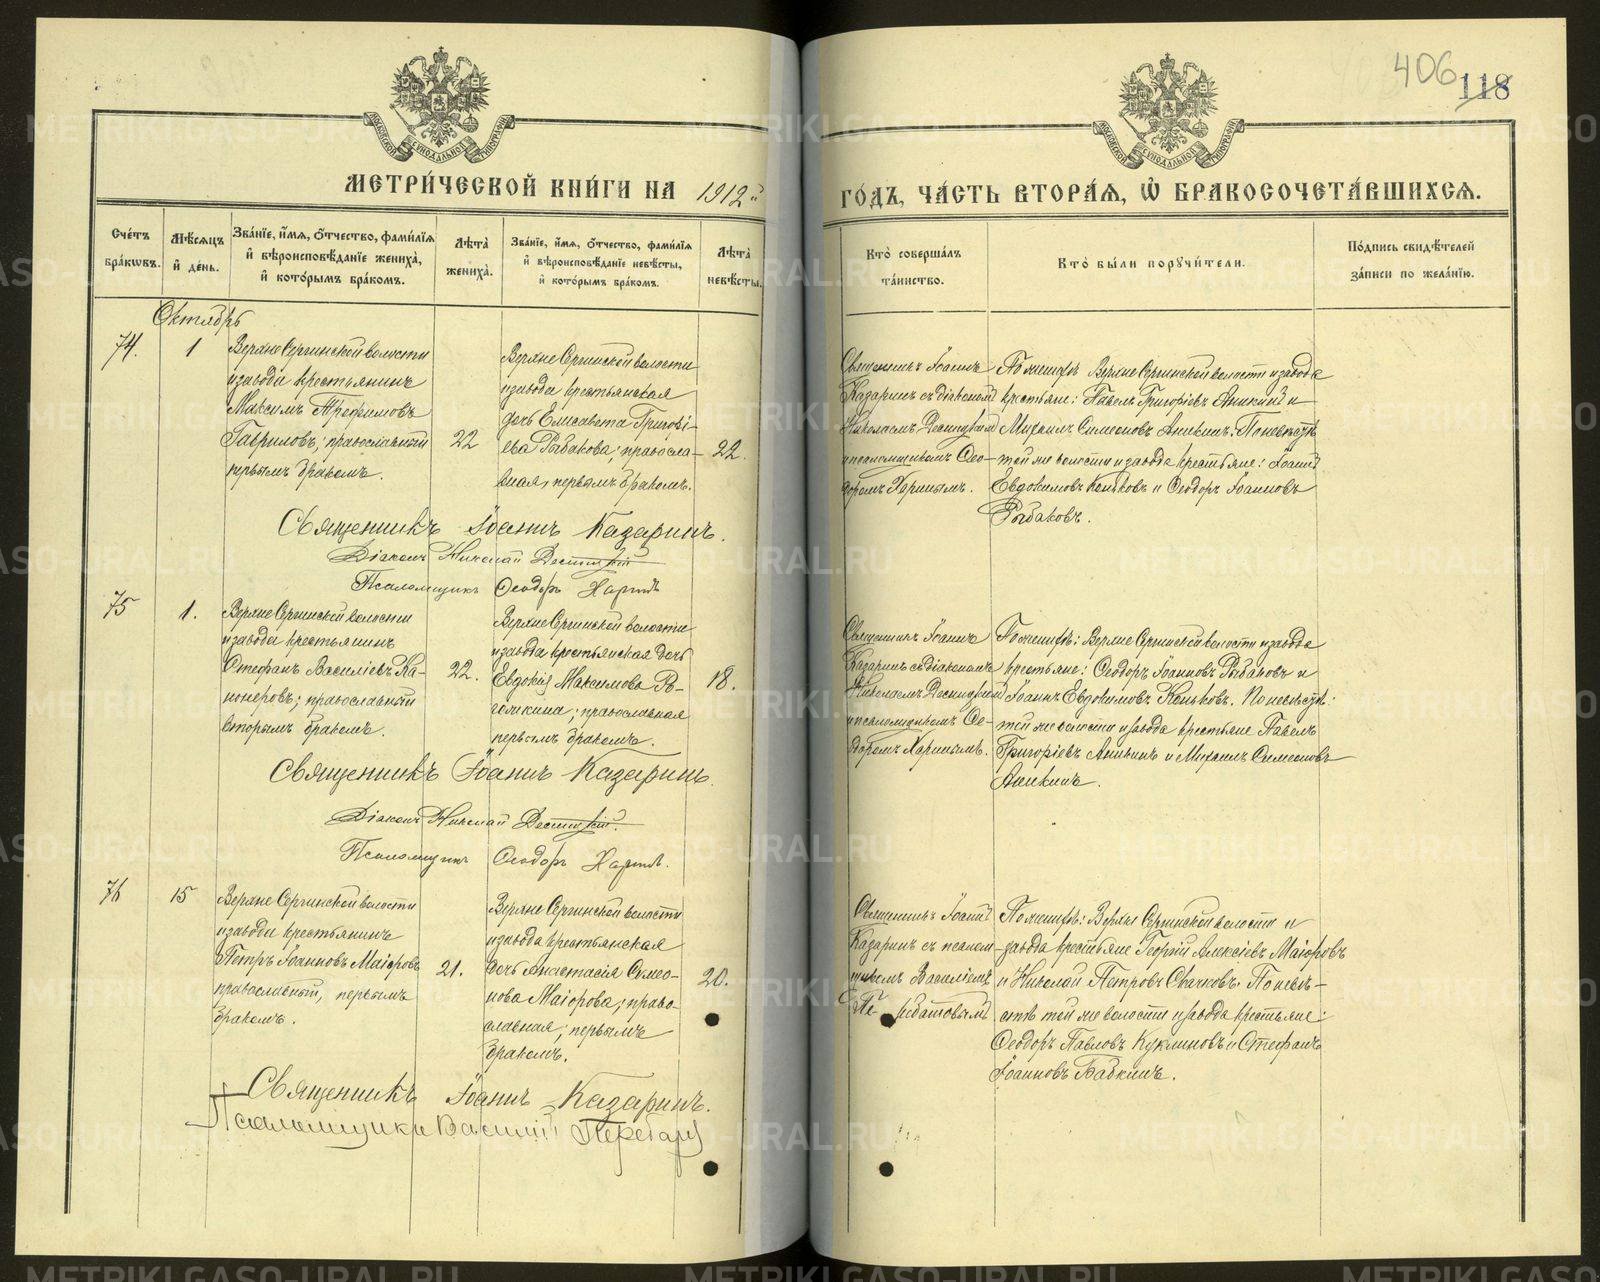 406
118
МОСКОВСКОЙ СѴНОДАЛЬНОЙ ТИПОГРАФІИ
МОСКОВСКОЙ СѴНОДАЛЬНОЙ ТИПОГРАФІИ
МЕТРИ́ЧЕСКОЙ КНИ́ГИ НА 1912й ГО́ДЪ, ЧА́СТЬ ВТОРА́Ѧ, Ѡ БРАКОСОЧЕТА́ВШИХСѦ.
Сче́тъ бра́кѡвъ.
Мѣ́сѧцъ и҆ де́нь.
Зва́нїе, и҆́мѧ, ѻ҆́тчество, фами́лїѧ и҆ вѣроисповѣ́данїе жениха̀, и҆ кото́рымъ бра́комъ.
Лѣ́та жениха̀.
Зва́нїе, и҆́мѧ, ѻ҆́тчество, фами́лїѧ и҆ вѣроисповѣ́данїе невѣ́сты, и҆ кото́рымъ бра́комъ.
Лѣ́та невѣ́сты.
Кто̀ соверша́лъ та́инство.
Кто̀ бы́ли порꙋчи́тели.
По́дпись свидѣ́телей за́писи по жела́нїю.
Октябрь
74.
1
Верхне Сергинской волости
и завода крестьянинъ
Максимъ Трефимовъ
Гавриловъ, православный
первымъ бракомъ.
22
Верхне Сергинской волости
и завода крестьянская
дочь Елисавета Григорі-
ева Рыбакова; правосла-
вная, первымъ бракомъ.
22.
Священникъ Іоаннъ
Казаринъ съ діакономъ
Николаемъ Десницкимъ
и псаломщикомъ Ѳео-
доромъ Харинымъ.
По женихѣ Верхне Сергинской волости и завода
крестьяне: Павелъ Григоріевъ Аникинъ и
Михаилъ Симеоновъ Аникинъ. По невѣстѣ
той же волости и завода крестьяне: Іоаннъ
Евдокимовъ Коньковъ и Ѳеодоръ Іоанновъ
Рыбаковъ.
Священникъ Іоаннъ Казаринъ.
Діаконъ Николай Десницкій
Псаломщикъ Ѳеодоръ Харинъ
75
1.
Верхне Сергинской волости
и завода крестьянинъ
Стефанъ Василіевъ Ка-
нонеровъ; православный
вторымъ бракомъ.
22.
Верхне Сергинской волости
и завода крестьянская дочь
Евдокія Максимова
православная
первымъ бракомъ.
18.
Священникъ Іоаннъ
Казаринъ съ діакономъ
Николаемъ Десницкимъ
и псаломщикомъ Ѳе-
одоромъ Харинымъ.
По женихѣ: Верхне Сергинской волости и завода
крестьяне: Ѳеодоръ Іоанновъ Рыбаковъ и
Іоаннъ Евдокимовъ Коньковъ. По невѣстѣ:
той же волости и завода крестьяне Павелъ
Григоріевъ Аникинъ и Михаилъ Симеоновъ
Аникинъ.
Священникъ Іоаннъ Казаринъ.
Діаконъ Николай Десницкій.
Псаломщикъ Ѳеодоръ Харинъ.
76
15
Верхне Сергинской волости
и завода крестьянинъ
Петръ Іоанновъ Маіоровъ
православный, первымъ
бракомъ.
21.
Верхне Сергинской волости
и завода крестьянская
дочь Анастасія Симео-
нова Маіорова; право-
славная; первымъ
бракомъ.
20.
Священникъ Іоаннъ
Казаринъ съ псалом-
щикомъ Василіемъ
По женихѣ: Верхне Сергинской волости и
завода крестьяне Георгій Алексіевъ Маіоровъ
и Николай Петровъ Свачковъ. По невѣ-
стѣ той же волости и завода крестьяне:
Ѳеодоръ Павловъ Куклиновъ и Стефанъ
Іоанновъ Бабкинъ.
Священникъ Іоаннъ Казаринъ.
Псаломщикъ Василій
METRIKI.GASO-URAL.RU